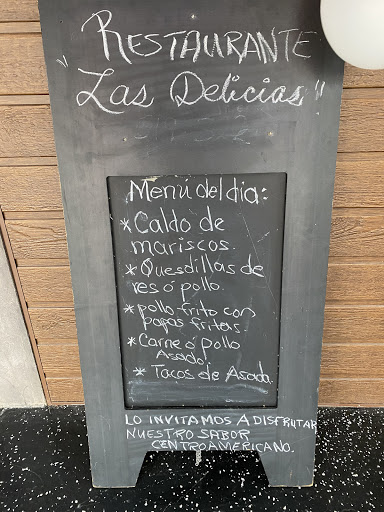 RESTAURANTE
"Las Delicias"
Menú del dia:
* Caldo de
mariscos.
* Quesdillas de
res ó pollo.
* pollo frito con
papas fritas.
* Carne ó Pollo
Asado.
* Tacos de Asada.
LO INVITAMOS A DISFRUTAR
NUESTRO SABOR
CENTROAMERICANO.